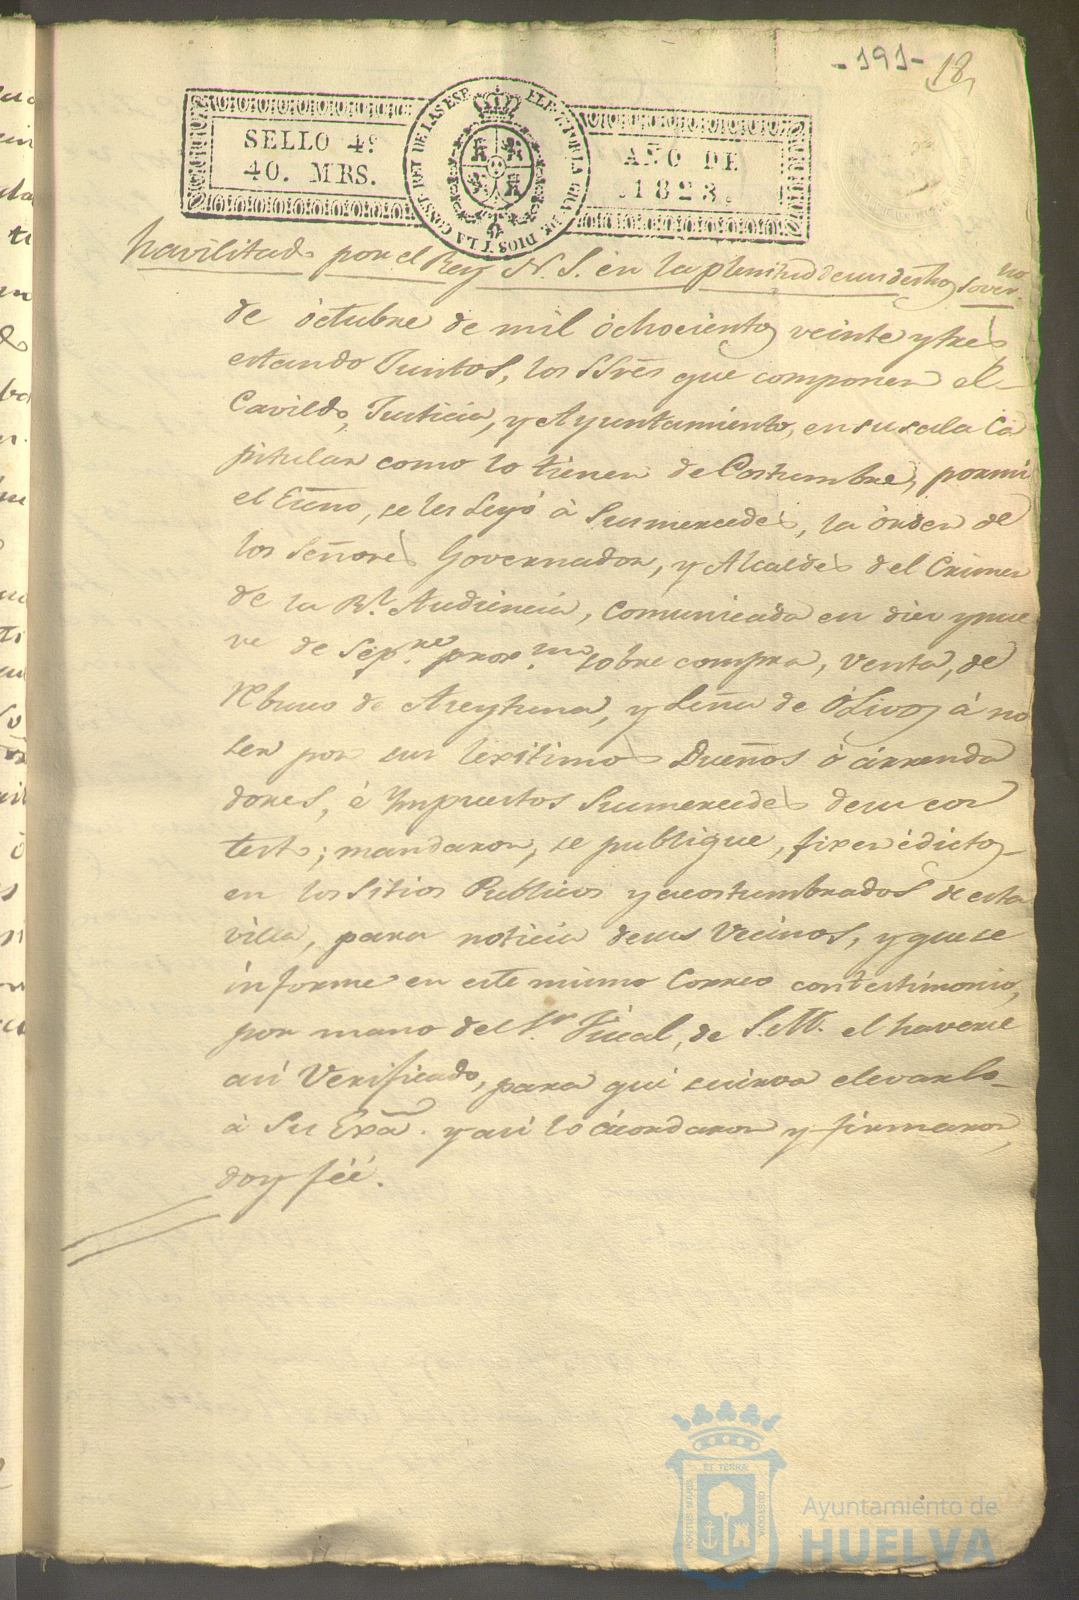 -191- 18,
SELLO 4º
40. MRS.
AÑO DE
1823.
FERN. 7º POR LA GRA. DE DIOS Y LA CONST. REY DE LAS ESP.
havilitado por el Rey N. S. en la plenitud de sus dechos Sover.nos
de óctubre de mil óchocientos veinte y tres
estando Juntos, los SSres que componen el
Cavildo, Justicia, y Ayuntamiento, en su sala Ca
pitular como lo tienen de Costumbre, por mi
el Essno, se les Leyó à Sus mercedes, la órden de
los Señores Governador, y Alcaldes del Crimen
de la Rl. Audiencia, comunicada en diez y nue
ve de Sep.re prox.mo sobre compra, venta, de
rebusco de Aceytuna, y Leña de Ólivos á no
ser por sus lexitimos Dueños ò árrenda
dores, é Ympuestos Sus mercedes de su con
testo; mandaron, se publique, fixen édictos
en los Sitios Publicos y acostumbrados de esta
villa, para noticia de sus Vecinos, y que se
informe en este mismo Correo con testimonio,
por mano del Sr. Fiscal, de S. M. el haverse
asi Verificado, para qui se sirva elevarlo
à Su Exa. y asi lo ácordaron y firmaron,
doy féé.
PORTUS MARIS ET TERRÆ CUSTODIA
Ayuntamiento de
HUELVA